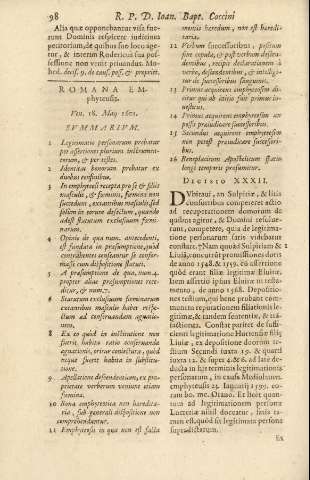 98 R. P. D. Ioan. Bapt. Coccini
Alia quæ opponebantur visa fue-
runt Dominis respicere iudicium
petitorium, de quibus suo loco age-
tur, & interim Rodericus sua pos-
sessione non venit priuandus. Mo-
hed. decis. 9. de caus. poss. & propriet.
ROMANA EM-
phyteusis.
Ven. 18. Maij 1601.
SVMMARIVM.
1 Legitimatio personarum probatur
per assertiones plurium instrumen-
torum, & per testes.
2 Identitas bonorum probatur ex
duobus confinibus.
3 In emphyteusi recepta pro se & filiis
masculis, & feminis, feminæ non
succedunt, extantibus masculis, sed
solum in eorum defectum, quando
adest statutum exclusiuum femi-
narum.
4 Opinio de qua num. antecedenti,
est fundata in præsumptione, quod
contrahentes censeantur se confor-
mare cum dispositione statuti.
5 A præsumptione de qua, num. 4.
propter alias præsumptiones rece-
ditur, & num. 7.
6 Statutum exclusiuum feminarum
extantibus masculis habet respe-
ctum ad conseruandam agnatio-
nem.
8 Ex eo quod in institutione non
fuerit habita ratio conseruandæ
agnationis, oritur coniectura, quod
neque fuerit habita in substitu-
tione.
9 Appellatione descendentium, ex pro-
prietate verborum veniunt etiam
femina.
10 Bona emphyteutica non heredita-
ria, sub generali dispositione non
comprehenduntur.
11 Emphyteusis in qua non est facta
mentio heredum, non est heredi-
taria.
12 Verbum successoribus, positum
sine copula, & post verbum descen-
dentibus, recipit declarationem à
verbo, descendentibus, & intelligi-
tur de successoribus sanguinis.
13 Primus acquirens emphyteusim di-
citur qui ab initio fuit primus in-
uestitus.
14 Primus acquirens emphyteusim an
possit præiudicare successoribus.
15 Secundus acquirens emphyteusim
non potest præiudicare successori-
bus.
16 Beneplacitum Apostolicum statim
longi temporis præsumitur.
DECISIO XXXII.
DVbitaui, an Sulpitiæ, & litis
consortibus competeret actio
ad recuperationem domorum de
quibus agitur, & Domini resolue-
runt, competere, quia de legitima-
tione personarum satis videbatur
constare. Nam quoad Sulpitiam & 1
Liuiã, concurrũt pronutissiones doris
de anno 1548. & 1559. cũ assertione
quòd erant filiæ legitimæ Eluiræ,
Item assertio ipsius Eluiræ in testa-
mento, de anno 1568. Depositio-
nes testium, qui bene probant com-
munem reputationem filiationis le-
gitimæ, & tandem sententiæ, & tra-
ctationes. Constat pariter de suffi-
cienti legitimatione Hortensiæ filiæ
Liuiæ, ex depositione duorum te-
stium Secundi iuxta 19. & quarti
iuxta 12. & supra 4. & 6. ad late de-
ducta in his terminis legitimationis
personarum, in causa Mediolanen.
emphyteusis 23. Ianuarij 1599. co-
ram bo. me. Orano. Et licet quan-
tum ad legitimationem personæ
Lucretiæ nihil doceatur, satis ta-
men est, quòd sit legitimata persona
supradictarum.
Ex